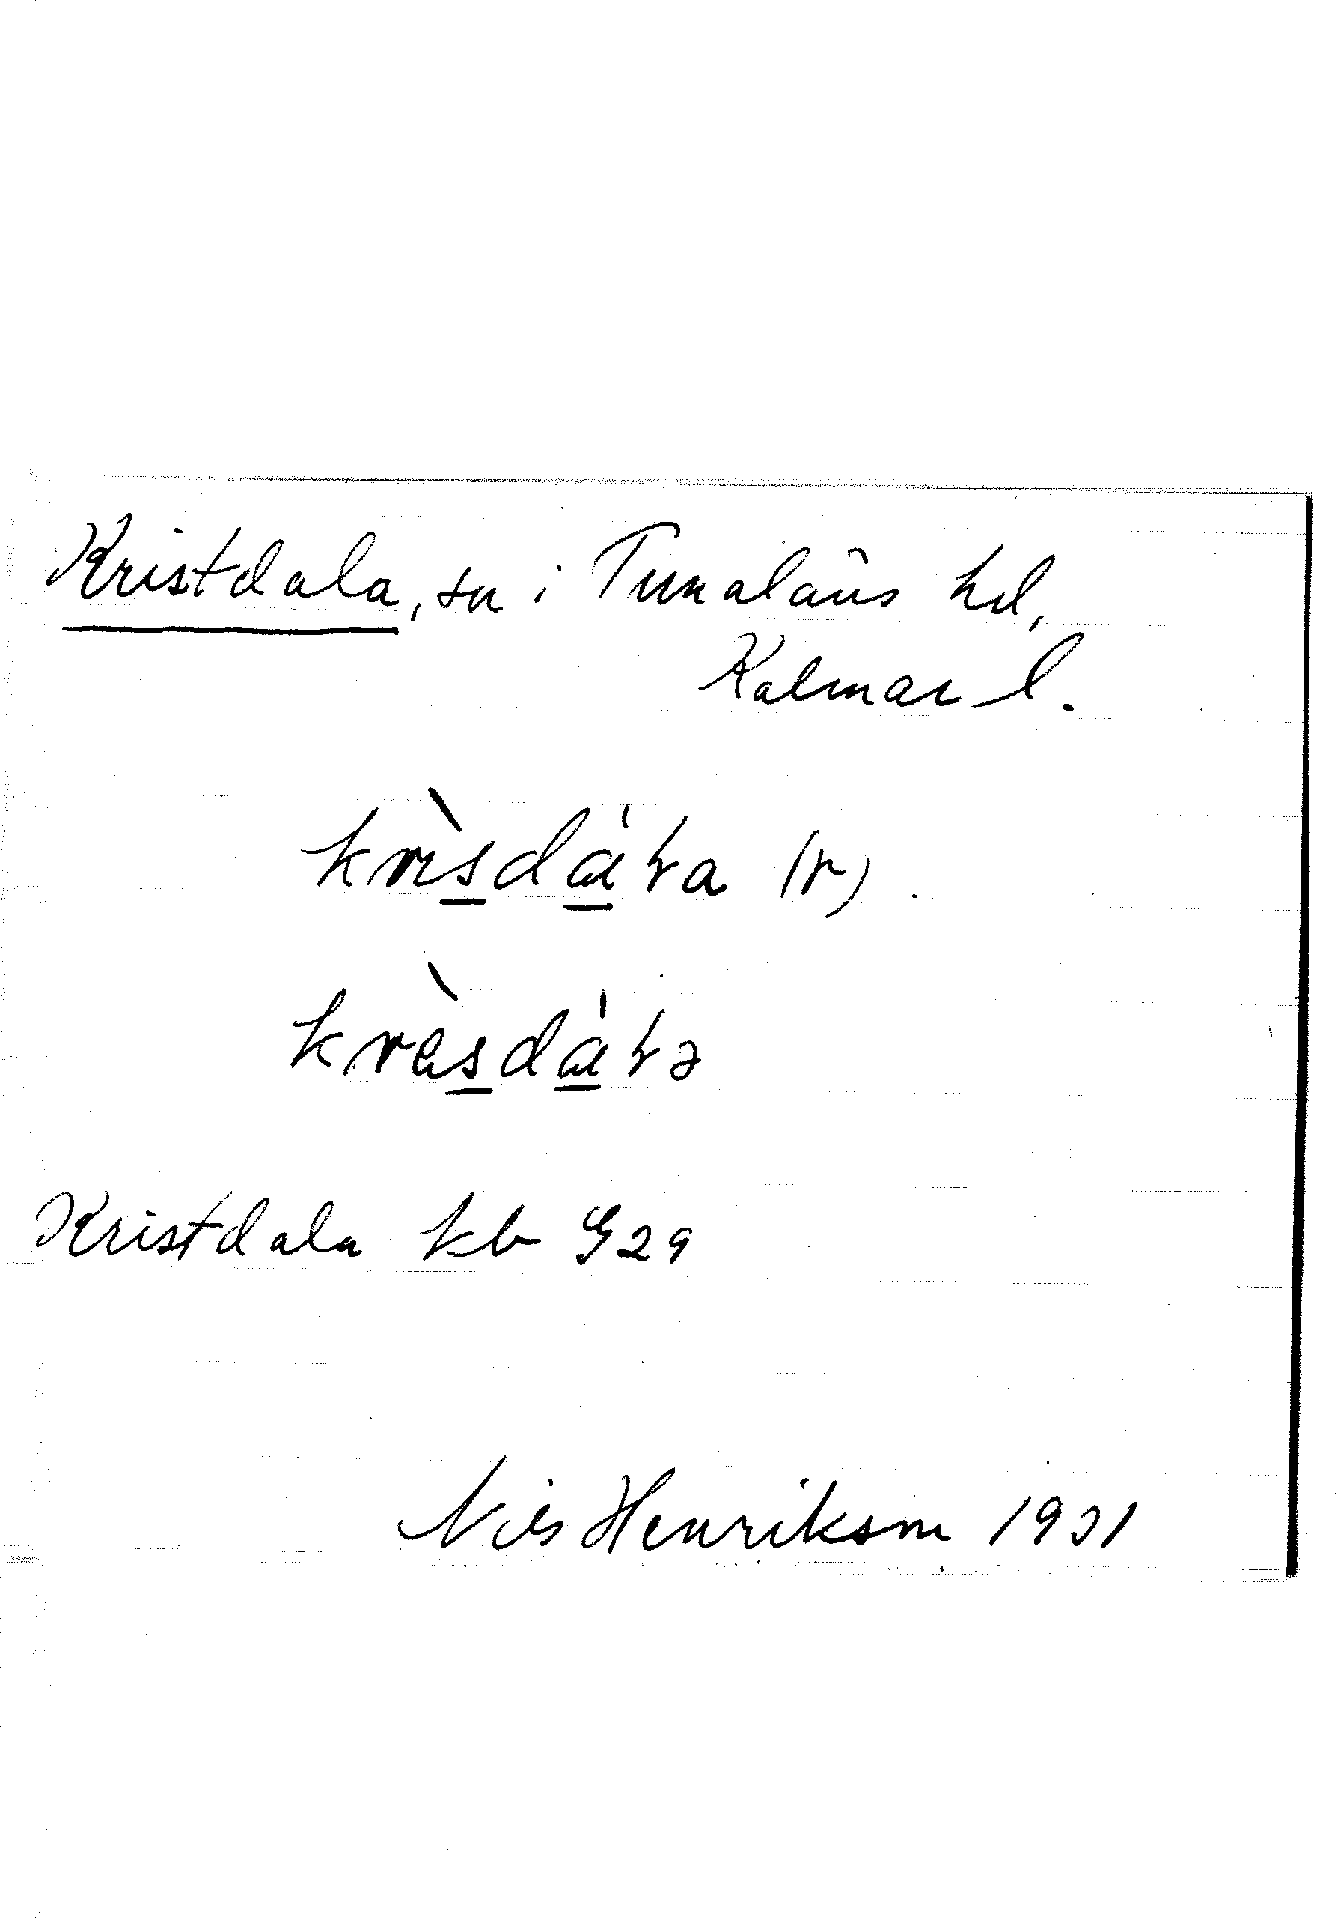 Kristdala, sn i Tunaläns hd,
Kalmar l.
krìsdàƚa (r)
krèsdàƚə
Kristdala kb G29
Nils Henrikson 1931